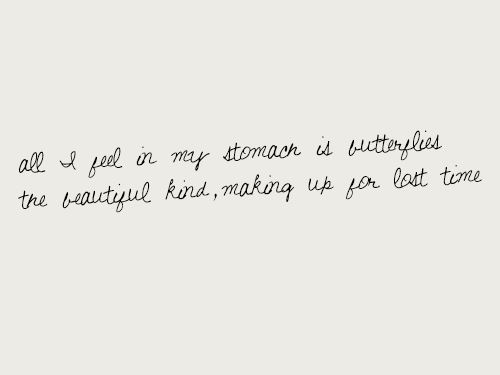 all I feel in my stomach is butterflies
the beautiful kind, making up for lost time